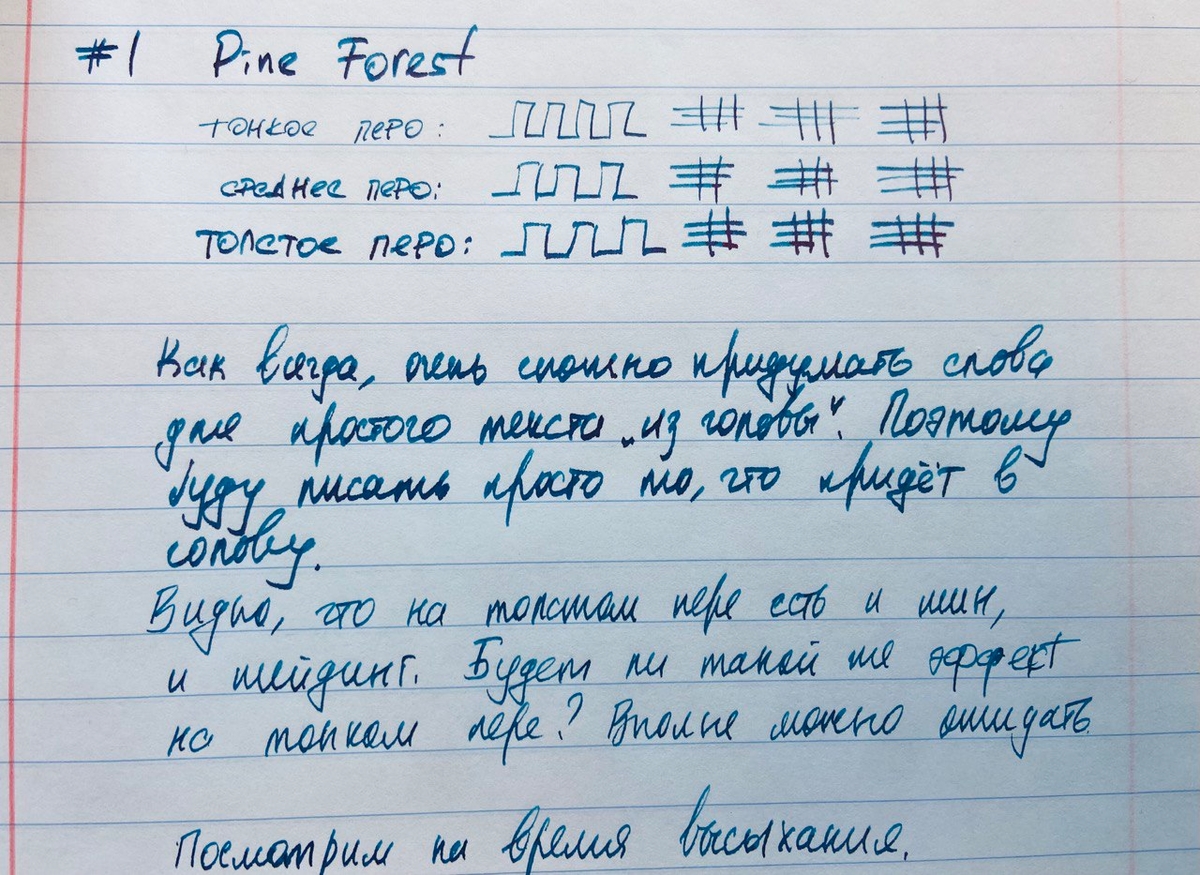 #1 Pine Forest
тонкое перо:
среднее перо:
толстое перо:
Как всегда, очень сложно придумать слова
для простого текста „из головы“. Поэтому
буду писать просто то, что придёт в
голову.
Видно, что на толстом пере есть и шин,
и шейдинг. Будет ли такой же эффект
на тонком пере? Вполне можно ожидать.
Посмотрим на время высыхания.